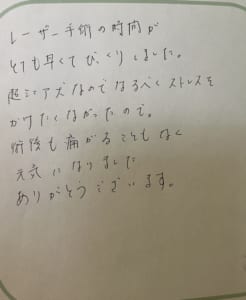 レーザー手術の時間が
とても早くてびっくりしました。
超シニアズなのでなるべくストレスを
かけたくなかったので。
術後も痛がることもなく
元気になりました
ありがとうございます。